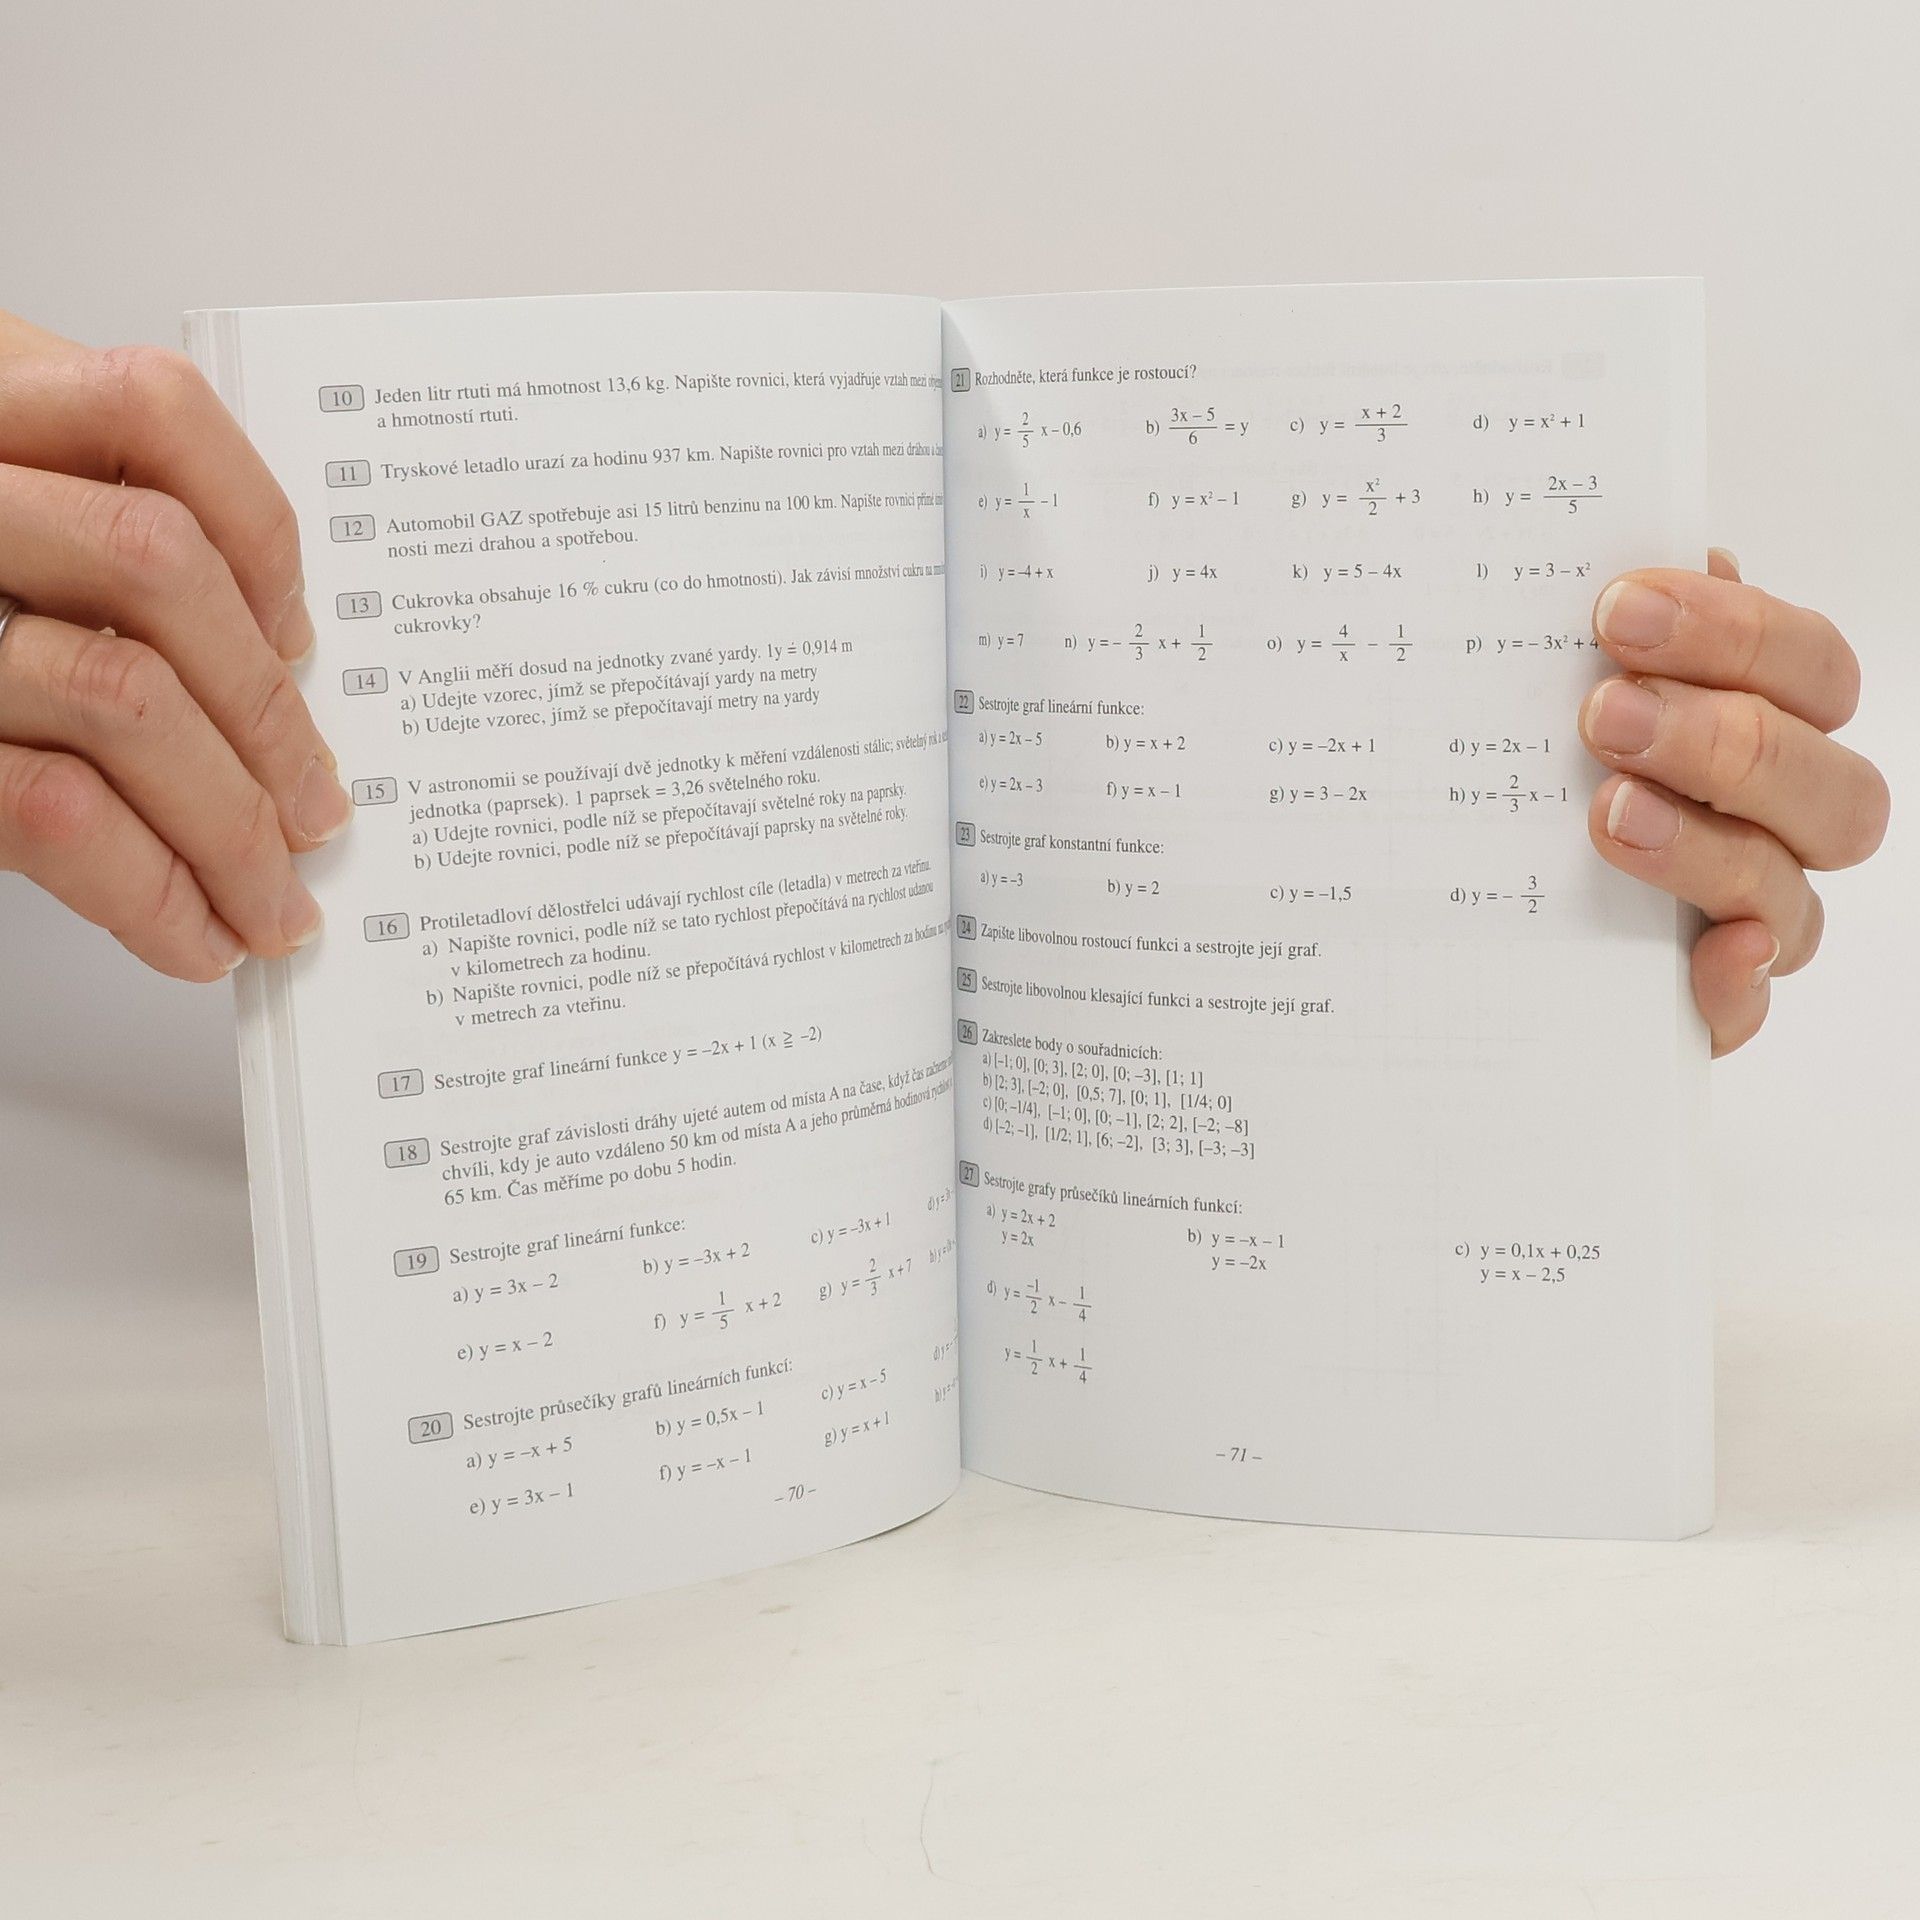 10 Jeden litr rtuti má hmotnost 13,6 kg. Napište rovnici, která vyjadřuje vztah mezi
a hmotností rtuti.
11 Tryskové letadlo urazí za hodinu 937 km. Napište rovnici pro vztah mezi dráhou a
12 Automobil GAZ spotřebuje asi 15 litrů benzinu na 100 km. Napište rovnici přímé
nosti mezi drahou a spotřebou.
13 Cukrovka obsahuje 16 % cukru (co do hmotnosti). Jak závisí množství cukru na
cukrovky?
14 V Anglii měří dosud na jednotky zvané yardy. 1y ≐ 0,914 m
a) Udejte vzorec, jímž se přepočítávají yardy na metry
b) Udejte vzorec, jímž se přepočítavají metry na yardy
15 V astronomii se používají dvě jednotky k měření vzdálenosti stálic; světelný rok a
jednotka (paprsek). 1 paprsek = 3,26 světelného roku.
a) Udejte rovnici, podle níž se přepočítavají světelné roky na paprsky.
b) Udejte rovnici, podle níž se přepočítávají paprsky na světelné roky.
16 Protiletadloví dělostřelci udávají rychlost cíle (letadla) v metrech za vteřinu.
a) Napište rovnici, podle níž se tato rychlost přepočítává na rychlost udanou
v kilometrech za hodinu.
b) Napište rovnici, podle níž se přepočítává rychlost v kilometrech za hodinu na
v metrech za vteřinu.
17 Sestrojte graf lineární funkce y = –2x + 1 (x ≧ –2)
18 Sestrojte graf závislosti dráhy ujeté autem od místa A na čase, když čas začneme
chvíli, kdy je auto vzdáleno 50 km od místa A a jeho průměrná hodinová rychlost
65 km. Čas měříme po dobu 5 hodin.
19 Sestrojte graf lineární funkce:
a) y = 3x – 2 b) y = –3x + 2 c) y = –3x + 1 d) y = 3x
e) y = x – 2 f) y = 1/5 x + 2 g) y = 2/3 x + 7 h) y =
20 Sestrojte průsečíky grafů lineárních funkcí:
a) y = –x + 5 b) y = 0,5x – 1 c) y = x – 5 d) y =
e) y = 3x – 1 f) y = –x – 1 g) y = x + 1 h) y =
– 70 –
21 Rozhodněte, která funkce je rostoucí?
a) y = 2/5 x – 0,6 b) (3x – 5)/6 = y c) y = (x + 2)/3 d) y = x² + 1
e) y = 1/x – 1 f) y = x² – 1 g) y = x²/2 + 3 h) y = (2x – 3)/5
i) y = –4 + x j) y = 4x k) y = 5 – 4x l) y = 3 – x²
m) y = 7 n) y = – 2/3 x + 1/2 o) y = 4/x – 1/2 p) y = – 3x² + 4
22 Sestrojte graf lineární funkce:
a) y = 2x – 5 b) y = x + 2 c) y = –2x + 1 d) y = 2x – 1
e) y = 2x – 3 f) y = x – 1 g) y = 3 – 2x h) y = 2/3 x – 1
23 Sestrojte graf konstantní funkce:
a) y = –3 b) y = 2 c) y = –1,5 d) y = – 3/2
24 Zapište libovolnou rostoucí funkci a sestrojte její graf.
25 Sestrojte libovolnou klesající funkci a sestrojte její graf.
26 Zakreslete body o souřadnicích:
a) [–1; 0], [0; 3], [2; 0], [0; –3], [1; 1]
b) [2; 3], [–2; 0], [0,5; 7], [0; 1], [1/4; 0]
c) [0; –1/4], [–1; 0], [0; –1], [2; 2], [–2; –8]
d) [–2; –1], [1/2; 1], [6; –2], [3; 3], [–3; –3]
27 Sestrojte grafy průsečíků lineárních funkcí:
a) y = 2x + 2 b) y = –x – 1 c) y = 0,1x + 0,25
y = 2x y = –2x y = x – 2,5
d) y = –1/2 x – 1/4
y = 1/2 x + 1/4
– 71 –